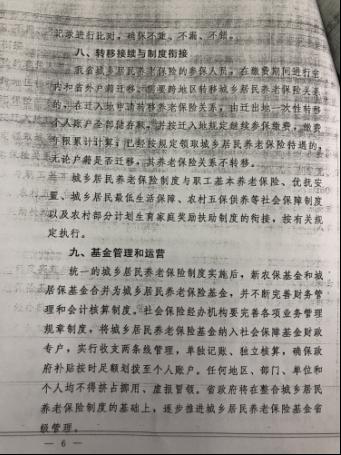 记录进行比对，确保不重、不漏、不错。
八、转移接续与制度衔接
我省城乡居民养老保险的参保人员，在缴费期间进行省
内和省外户籍迁移、需要跨地区转移城乡居民养老保险关系
的，在迁入地申请转移养老保险关系，由迁出地一次性转移
个人账户全部储存额，并按迁入地规定继续参保缴费，缴费
年限累计计算；已经按规定领取城乡居民养老保险待遇的，
无论户籍是否迁移，其养老保险关系不转移。
城乡居民养老保险制度与职工基本养老保险、优抚安
置、城乡居民最低生活保障、农村五保供养等社会保障制度
以及农村部分计划生育家庭奖励扶助制度的衔接，按有关规
定执行。
九、基金管理和运营
统一的城乡居民养老保险制度实施后，新农保基金和城
居保基金合并为城乡居民养老保险基金，并不断完善财务管
理和会计核算制度。社会保险经办机构要完善各项业务管理
规章制度，将城乡居民养老保险基金纳入社会保障基金财政
专户，实行收支两条线管理，单独记账、独立核算，确保政
府补贴按时足额划拨至个人账户。任何地区、部门、单位和
个人均不得挤占挪用、虚报冒领。省政府将在整合城乡居民
养老保险制度的基础上，逐步推进城乡居民养老保险基金省
级管理。
— 6 —